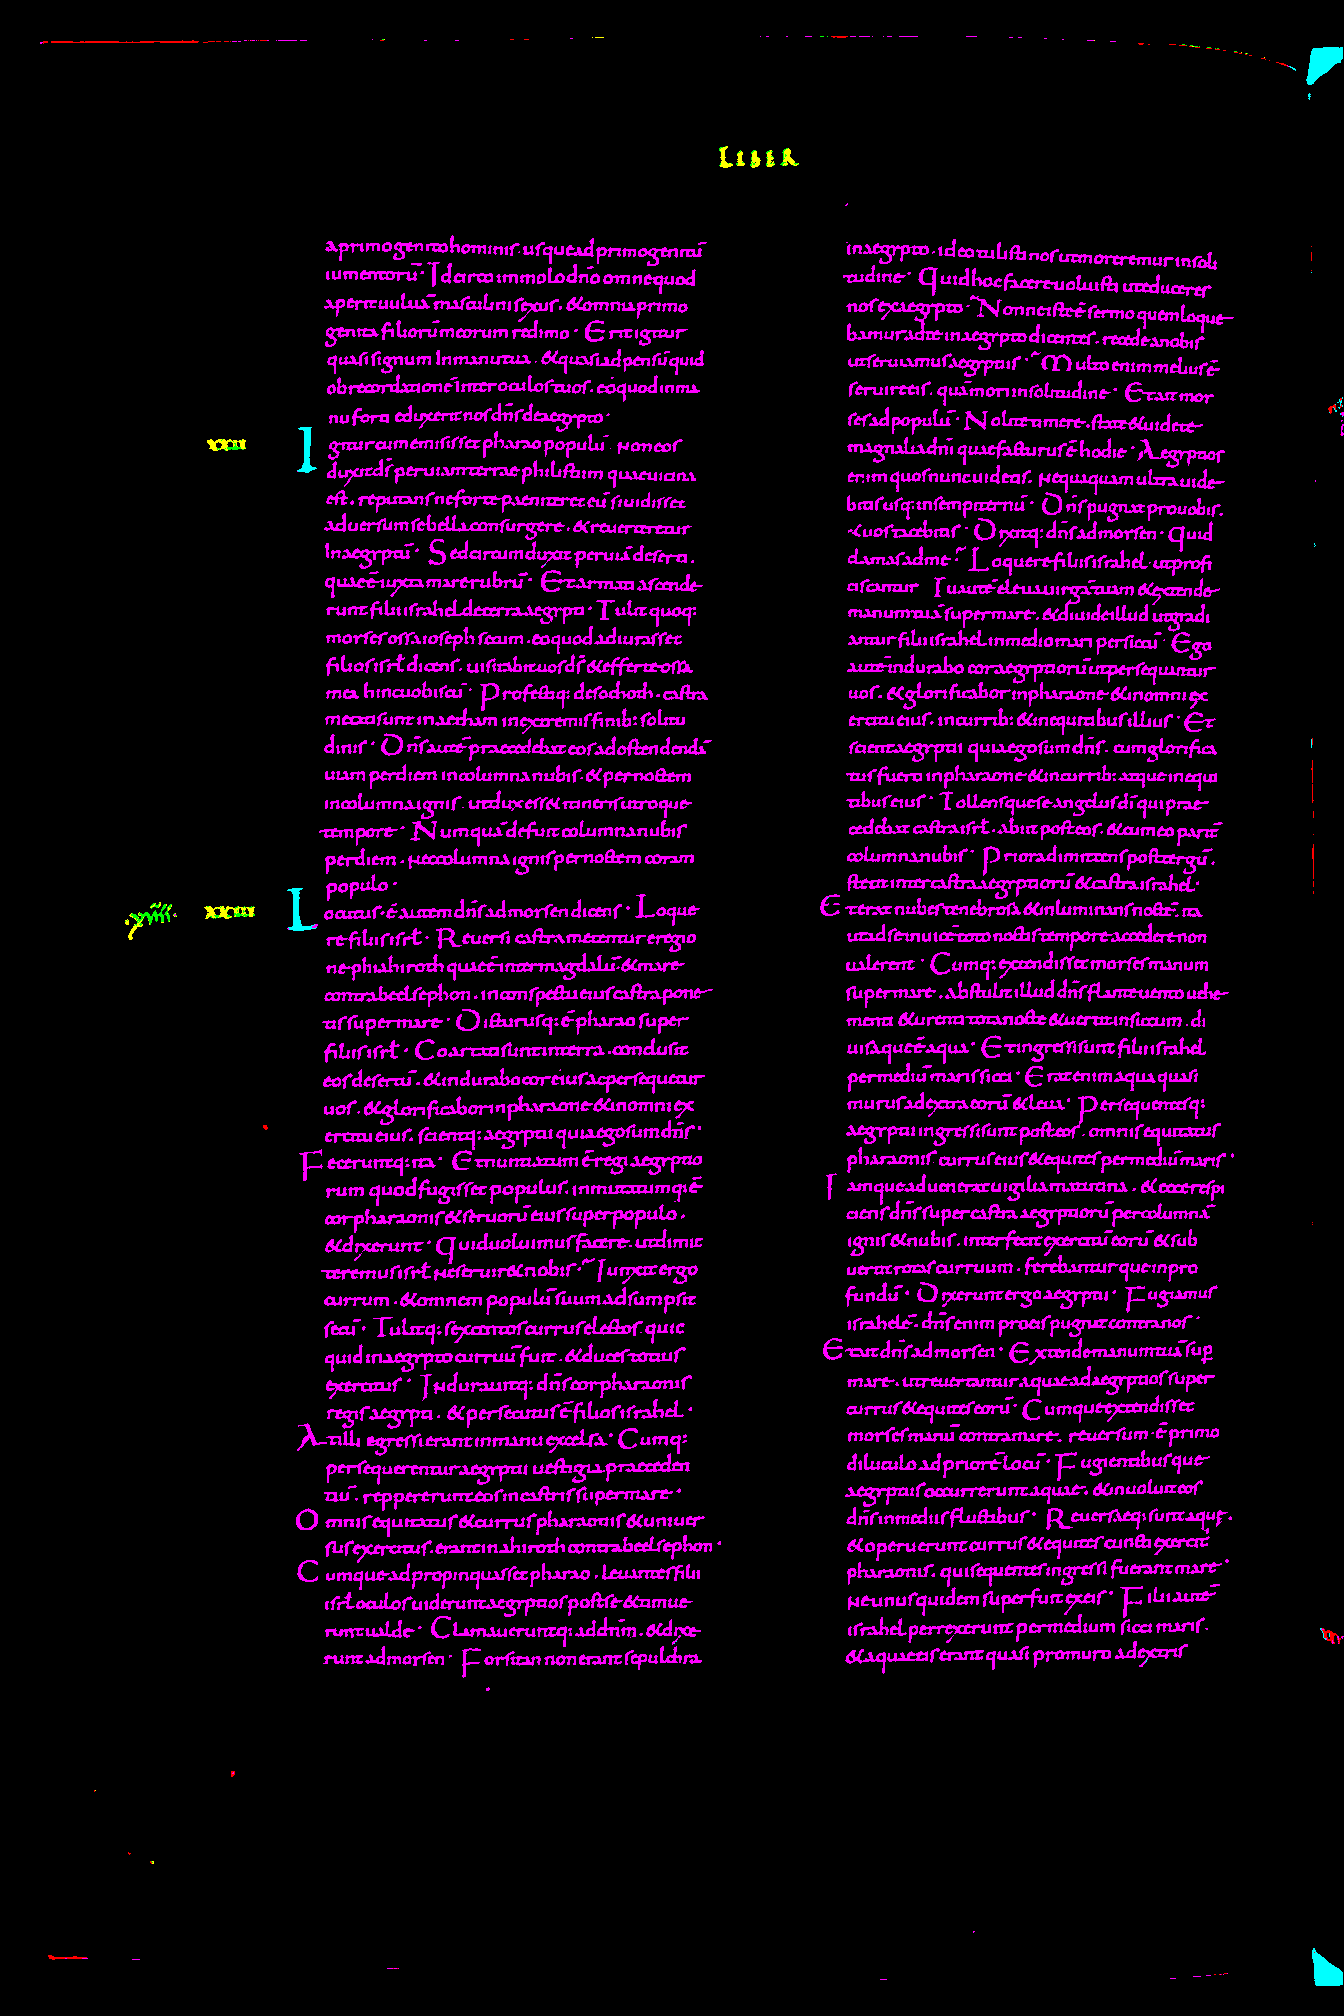 LIBER
a primogenito hominis. usque ad primogenitū
iumentorū. Idcirco immolo dnō omne quod
aperit uuluā masculini sexus. & omnia primo
genita filiorū meorum redimo. Erit igitur
quasi signum in manu tua. & quasi adpensū quid
ob recordationē inter oculos tuos. eo quod in ma
nu forti eduxerit nos dns de aegypto.
XXII
Igitur cum emisisset pharao populū. Non eos
duxit ds per uiam terrae philistiim quae uicina
est. reputans ne forte paeniteret eū si uidisset
aduersum se bella consurgere. & reuerteretur
In aegyptū. Sed circumduxit per uiā deserti.
quae ē iuxta mare rubrū. Et armati ascende
runt filii israhel de terra aegypti. Tulit quoq:
morses ossa ioseph secum. eo quod adiurasset
filios isrł dicens. uisitabit uos ds efferte ossa
mea hinc uobiscū. Profectiq: de sochoth. castra
metati sunt in aetham in extremis finib: solitu
dinis. Dns autē praecedebat eos ad ostendendā
uiam per diem in columna nubis. & per noctem
in columna ignis. ut dux esset itineris utroque
tempore. Numquā defuit columna nubis
per diem. Nec columna ignis per noctem coram
populo.
XXIII
Locutus. ē autem dns ad morsen dicens. Loque
re filiis isrł. Reuersi castrametentur e regio
ne phiahiroth quae ē inter magdalū & mare
contra beelsephon. in conspectu eius castra pone
tis super mare. Dicturusq: ē pharao super
filiis isrł. Coartati sunt in terra. conclusit
eos desertū. & indurabo cor eius ac persequetur
uos. & glorificabor in pharaone & in omni ex
ercitu eius. scientq: aegyptii quia ego sum dns.
Feceruntq: ita. Et nuntiatum ē regi aegyptio
rum quod fugisset populus. inmutatumq: ē
cor pharaonis & seruorū eius super populo.
& dixerunt. Quid uoluimus facere. ut dimit
teremus isrł Ne seruiret nobis. Iunxit ergo
currum. & omnem populū suum adsumpsit
secū. Tulitq: sexcentos currus electos. quic
quid in aegypto curruū fuit. & duces totius
exercitus. Indurauitq: dns cor pharaonis
regis aegypti. & persecutus ē filios israhel.
At illi egressi erant in manu excelsa. Cumq:
persequerentur aegyptii uestigia praeceden
tiū. reppererunt eos in castris super mare.
Omnis equitatus & currus pharaonis & uniuer
sus exercitus. erant in ahiroth contra beelsephon.
Cumque adpropinquasset pharao. leuantes filii
isrł oculos uiderunt aegyptios post se & timue
runt ualde. Clamaueruntq: ad dnm. & dixe
runt ad morsen. Forsitan non erant sepulchra
in aegypto. ideo tulisti nos ut moreremur in soli
tudine. Quid hoc facere uoluisti ut educeres
nos ex aegypto. Nonne iste ē sermo quem loque
bamur ad te in aegypto dicentes. recede a nobis
ut seruiamus aegyptiis. Multo enim melius ē
seruire eis. quā mori in solitudine. Et ait mor
ses ad populū. Nolite timere. state & uidete
magnalia dni quae facturus ē hodie. Aegyptios
enim quos nunc uidetis. nequaquam ultra uide
bitis usq: in sempiternū. Dns pugnat pro uobis.
& uos tacebitis. Dixitq: dns ad morsen. Quid
clamas ad me. Loquere filiis israhel. ut profi
ciscantur Tu autē eleua uirgā tuam & extende
manum tuā super mare. & diuide illud ut gradi
antur filii israhel in medio mari per siccū. Ego
autē indurabo cor aegyptiorū ut persequantur
uos. & glorificabor in pharaone & in omni ex
ercitu eius. in currib: & in equitibus illius. Et
scient aegyptii quia ego sum dns. cum glorifica
tus fuero in pharaone & in currib: atque in equi
tibus eius. Tollensque se angelus di qui prae
cedebat castra isrł. abiit post eos. & cum eo paritē
columna nubis. Priora dimittens post tergū.
stetit inter castra aegyptiorū & castra israhel.
Et erat nubes tenebrosa & inluminans noctē. ita
ut ad se inuicē toto noctis tempore accedere non
ualerent. Cumq: extendisset morses manum
super mare. abstulit illud dns flante uento uehe
menti & urenti tota nocte & uertit in siccum. di
uisaque ē aqua. Et ingressi sunt filii israhel
per mediū maris sicci. Erat enim aqua quasi
murus a dextra eorū & leua. Persequentesq:
aegyptii ingressi sunt post eos. omnis equitatus
pharaonis currus eius & equites per mediū maris.
Iamque aduenerat uigilia matutina. & ecce respi
ciens dns super castra aegyptiorū per columnā
ignis & nubis. interfecit exercitū eorū & sub
uertit rotas curruum. ferebanturque in pro
fundū. Dixerunt ergo aegyptii. Fugiamus
israhelē. dns enim pro eis pugnat contra nos.
Et ait dns ad morsen. Extende manum tuā sup
mare. ut reuertantur aquae ad aegyptios super
currus & equites eorū. Cumque extendisset
morses manū contra mare. reuersum. ē primo
diluculo ad priorē locū. Fugientibusque
aegyptiis occurrerunt aquae. & inuoluit eos
dns in mediis fluctibus. Reuersaeq: sunt aquę.
& operuerunt currus & equites cuncti exercit
pharaonis. qui sequentes ingressi fuerant mare.
Ne unus quidem superfuit ex eis. Filii autē
israhel perrexerunt per medium sicci maris.
& aquae eis erant quasi pro muro a dextris